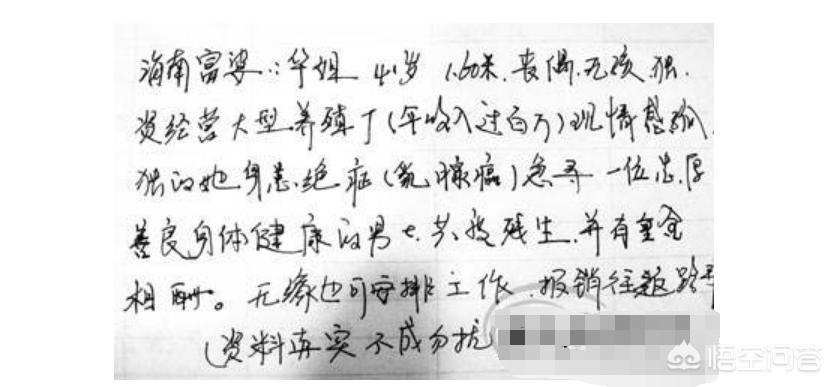 海南富婆：华姐 41岁 1.60米.丧偶.无孩.独.
资经营大型养殖厂(年收入过百万)现情感孤.
独的她身患绝症(乳腺癌)急寻一位忠.厚
善良身体健康的男士.共度残生.并有重金
相酬。无缘也可安排工作.报销往返路
(资料真实不成勿扰
悟空问答